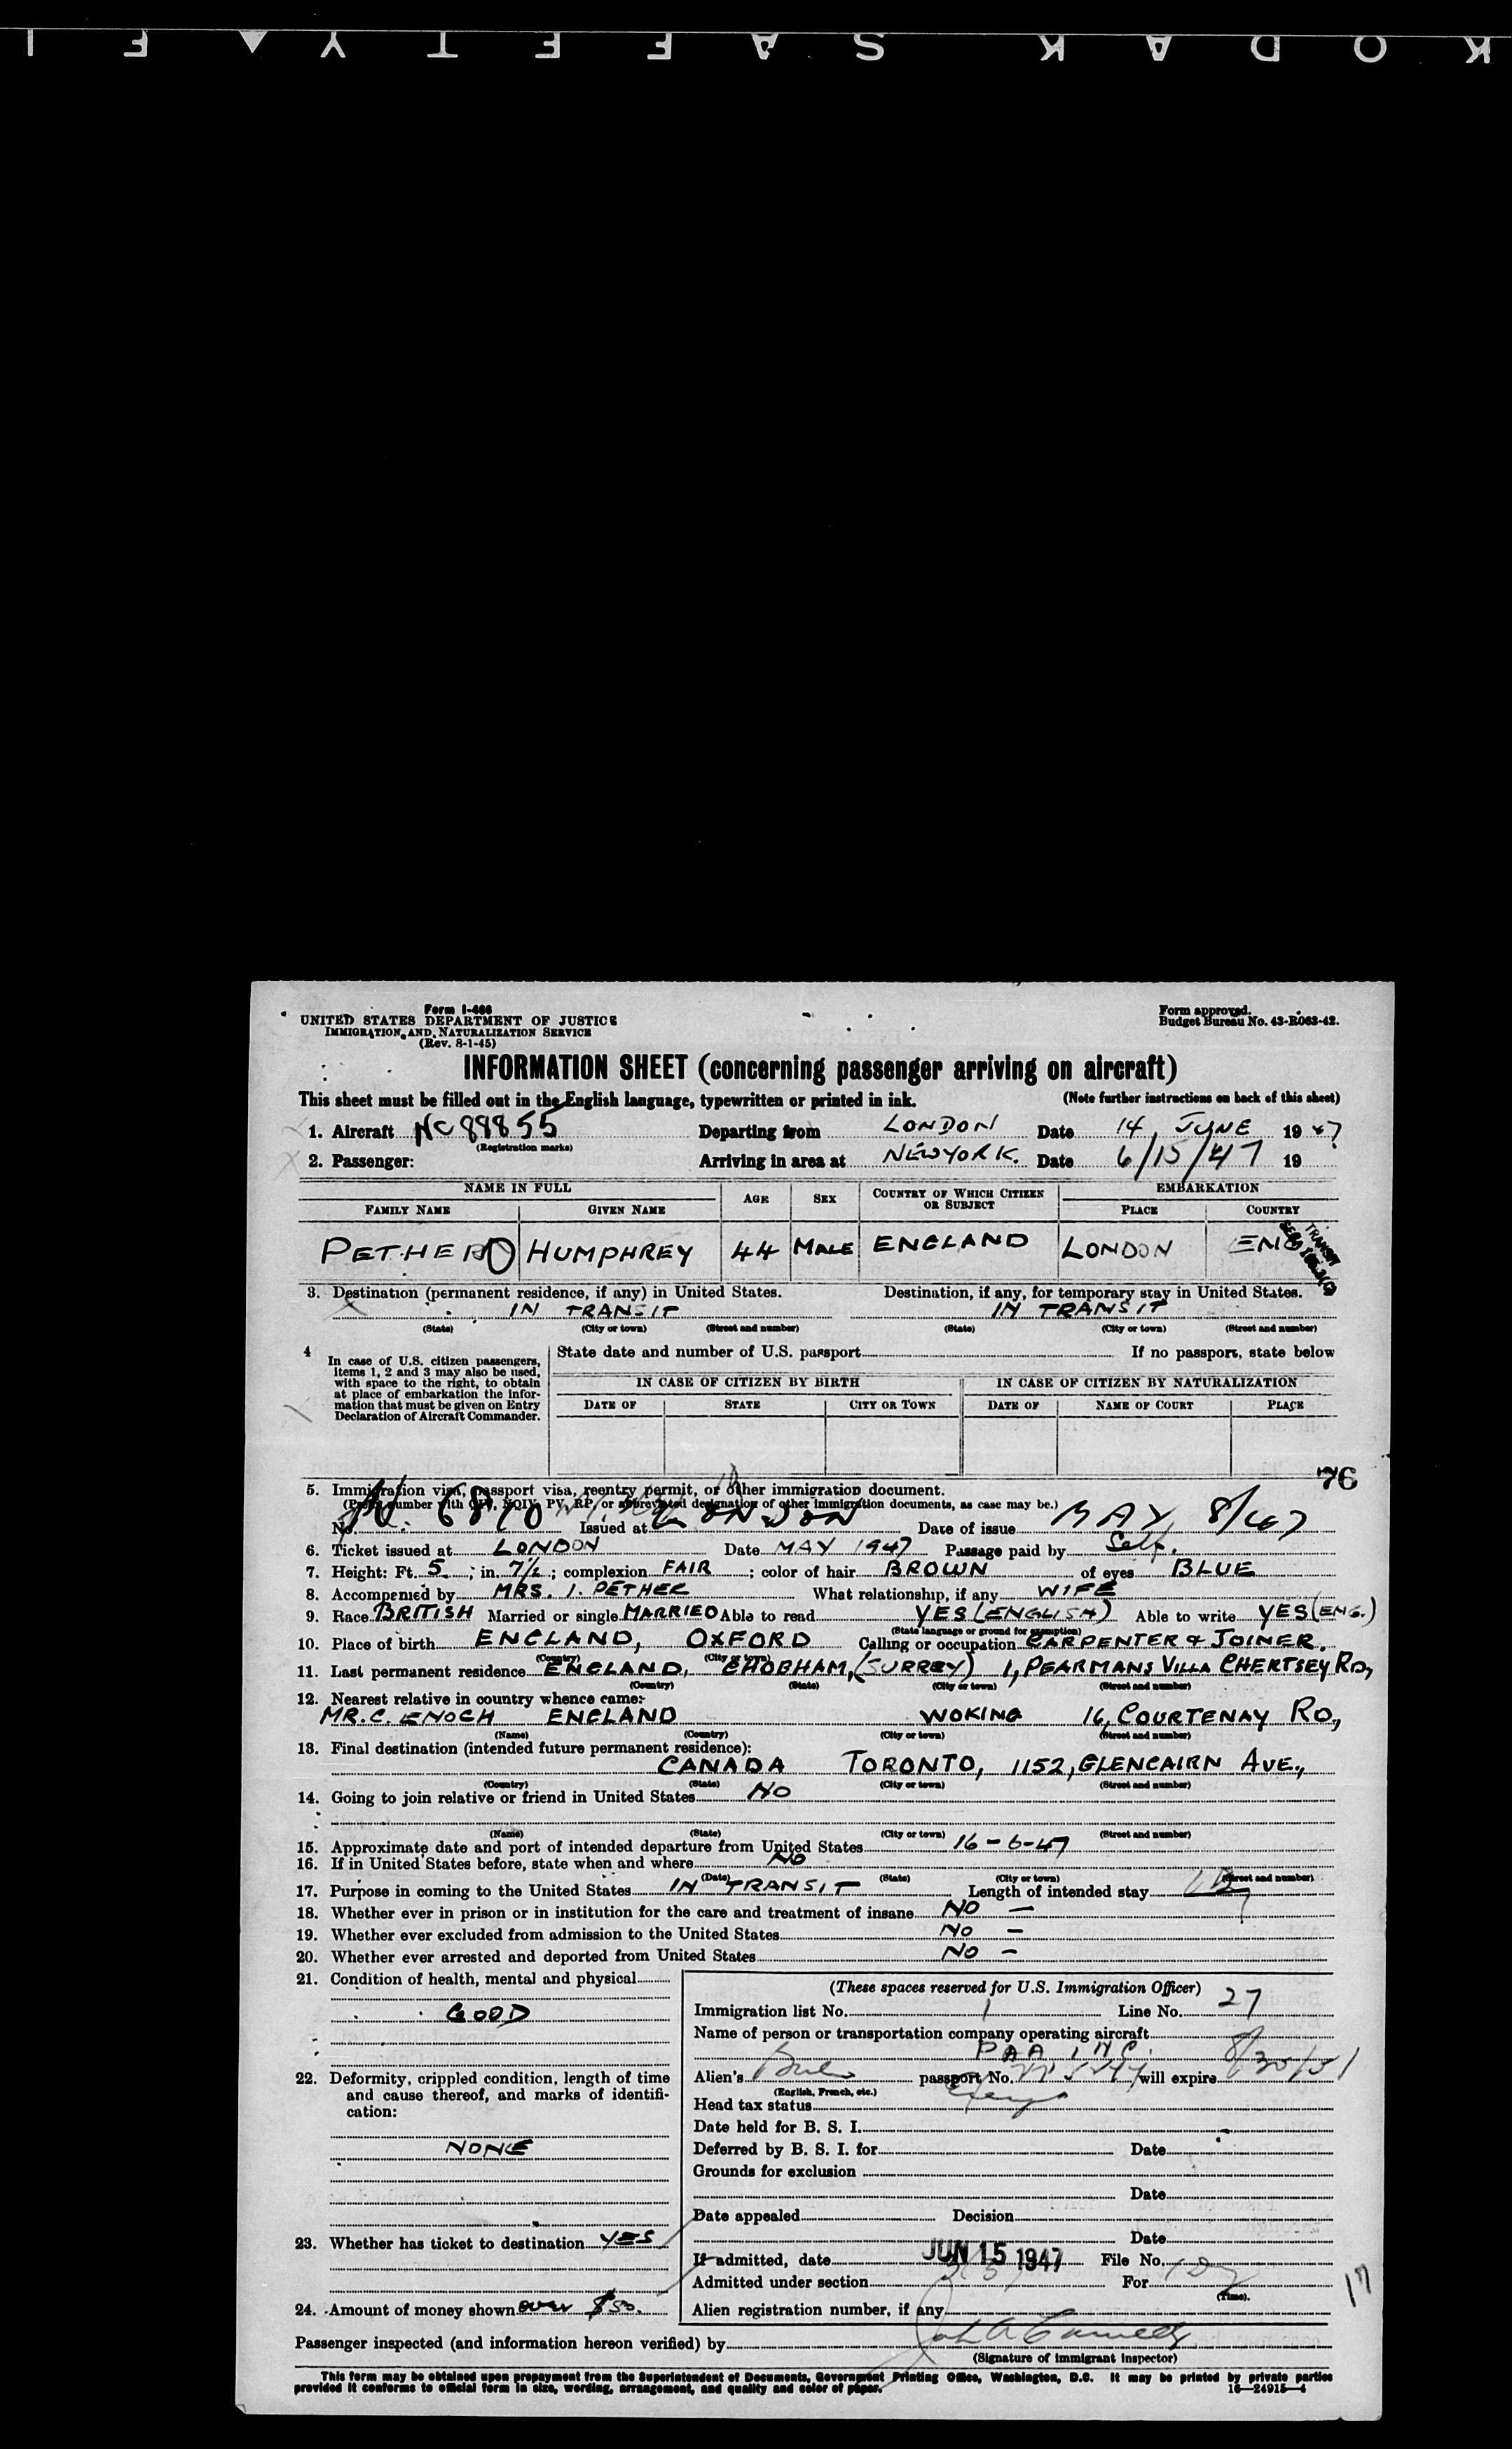 KODAK SAFETY FI
Form I-466
UNITED STATES DEPARTMENT OF JUSTICE
IMMIGRATION AND NATURALIZATION SERVICE
(Rev. 8-1-45)
Form approved.
Budget Bureau No. 43-R063-42.
INFORMATION SHEET (concerning passenger arriving on aircraft)
This sheet must be filled out in the English language, typewritten or printed in ink. (Note further instructions on back of this sheet)
1. Aircraft NC88855 Departing from LONDON Date 14, JUNE 1947
(Registration marks)
2. Passenger: Arriving in area at NEW YORK. Date 6/15/47 19
NAME IN FULL AGE SEX COUNTRY OF WHICH CITIZEN OR SUBJECT EMBARKATION
FAMILY NAME GIVEN NAME PLACE COUNTRY
PETHER HUMPHREY 44 MALE ENGLAND LONDON ENG
TRANSIT
3. Destination (permanent residence, if any) in United States. Destination, if any, for temporary stay in United States.
IN TRANSIT IN TRANSIT
(State) (City or town) (Street and number) (State) (City or town) (Street and number)
4 In case of U.S. citizen passengers, items 1, 2 and 3 may also be used, with space to the right, to obtain at place of embarkation the information that must be given on Entry Declaration of Aircraft Commander.
State date and number of U.S. passport If no passport, state below
IN CASE OF CITIZEN BY BIRTH IN CASE OF CITIZEN BY NATURALIZATION
DATE OF STATE CITY OR TOWN DATE OF NAME OF COURT PLACE
76
5. Immigration visa, passport visa, reentry permit, or other immigration document.
(Prefix number with QIV, NQIV, PV, RP, or abbreviated designation of other immigration documents, as case may be.)
No. Issued at LONDON Date of issue MAY 8/47
6. Ticket issued at LONDON Date MAY 1947 Passage paid by Self.
7. Height: Ft. 5 ; in. 7½ ; complexion FAIR ; color of hair BROWN of eyes BLUE
8. Accompanied by MRS. I. PETHER What relationship, if any WIFE
9. Race BRITISH Married or single MARRIED Able to read YES (ENGLISH) Able to write YES (ENG.)
(State language or ground for exemption)
10. Place of birth ENGLAND, OXFORD Calling or occupation CARPENTER & JOINER.
(Country) (City or town)
11. Last permanent residence ENGLAND, CHOBHAM, (SURREY) 1, PEARMANS VILLA CHERTSEY RD,
(Country) (State) (City or town) (Street and number)
12. Nearest relative in country whence came:
MR. C. ENOCH ENGLAND WOKING 16, COURTENAY RD,
(Name) (Country) (City or town) (Street and number)
13. Final destination (intended future permanent residence):
CANADA TORONTO, 1152, GLENCAIRN AVE.,
(Country) (State) (City or town) (Street and number)
14. Going to join relative or friend in United States NO
(Name) (State) (City or town) (Street and number)
15. Approximate date and port of intended departure from United States 16-6-47
16. If in United States before, state when and where NO
(Date) (State) (City or town) (Street and number)
17. Purpose in coming to the United States IN TRANSIT Length of intended stay
18. Whether ever in prison or in institution for the care and treatment of insane NO —
19. Whether ever excluded from admission to the United States NO —
20. Whether ever arrested and deported from United States NO —
21. Condition of health, mental and physical
GOOD
22. Deformity, crippled condition, length of time and cause thereof, and marks of identification:
NONE
23. Whether has ticket to destination YES
24. Amount of money shown over $50.
(These spaces reserved for U.S. Immigration Officer)
Immigration list No. 1 Line No. 27
Name of person or transportation company operating aircraft
PAA INC.
Alien's passport No. will expire 8/30/51
(English, French, etc.)
Head tax status
Date held for B. S. I.
Deferred by B. S. I. for Date
Grounds for exclusion
Date
Date appealed Decision
Date
If admitted, date JUN 15 1947 File No.
Admitted under section For
(Time).
17
Alien registration number, if any
Passenger inspected (and information hereon verified) by
(Signature of immigrant inspector)
This form may be obtained upon prepayment from the Superintendent of Documents, Government Printing Office, Washington, D.C. It may be printed by private parties
provided it conforms to official form in size, wording, arrangement, and quality and color of paper. 16—24915-4